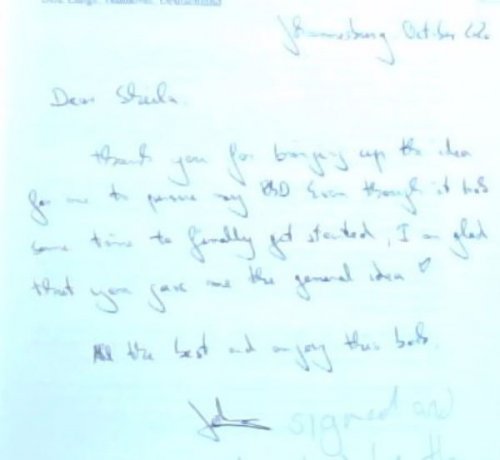 Johannesburg October
Dear Sheila
thank you for bringing up the idea
for me to pursue my PhD Even though it
some time to finally get started, I am glad
that you gave me the general idea
All the best and enjoy this
signed and